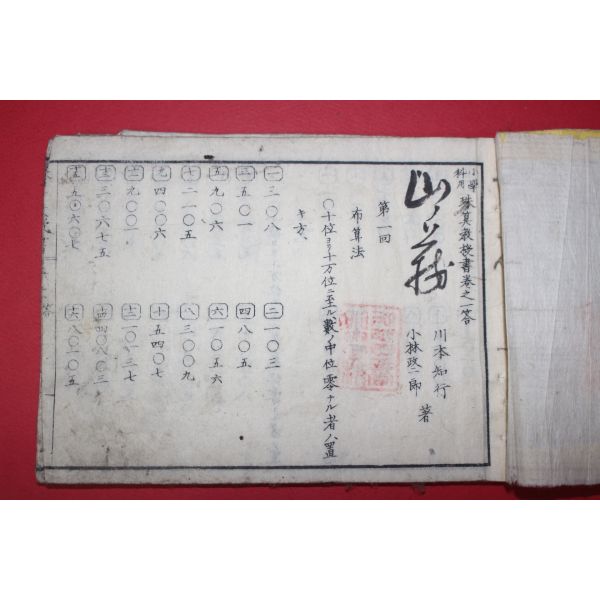 小學科用 珠算教授書巻之一答
川本知行
小林政二郎 著
第一回
布算法
〇十位ヨリ十万位ニ至ル数ノ中位零ナル者ハ置
キ方、
一 三〇八
二 一〇三
三 五〇一
四 八〇五
五 九〇六
六 一〇五六
七 二一〇五
八 三〇〇九
九 四〇〇六
十 五四〇七
十一 九〇〇一
十二 一〇一三七
十三 三〇六七五
十四 四〇八〇三
十五 五九〇六〇七
十六 八〇二〇五